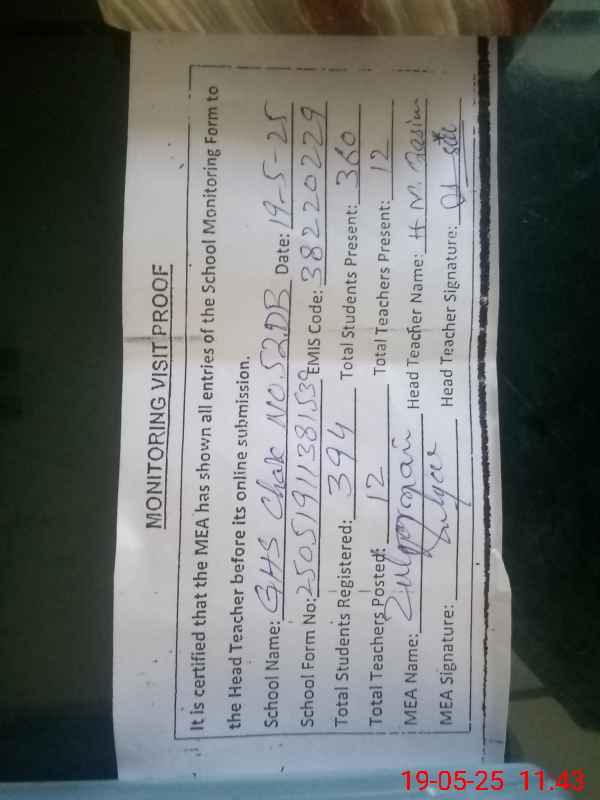 MONITORING VISIT PROOF
It is certified that the MEA has shown all entries of the School Monitoring Form to
the Head Teacher before its online submission.
School Name: GHS Chak NO.52.DB Date: 19-5-25
School Form No: 25051911381539 EMIS Code: 38220229
Total Students Registered: 394 Total Students Present: 360
Total Teachers Posted: 12 Total Teachers Present: 12
MEA Name: Head Teacher Name: H M. Qasim
MEA Signature: Head Teacher Signature:
19-05-25 11.43